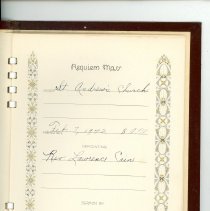 Requiem Mass
St Andrew's Church
Feb 7, 1942
OFFICIATING
Rev Lawrence
SERMON BY